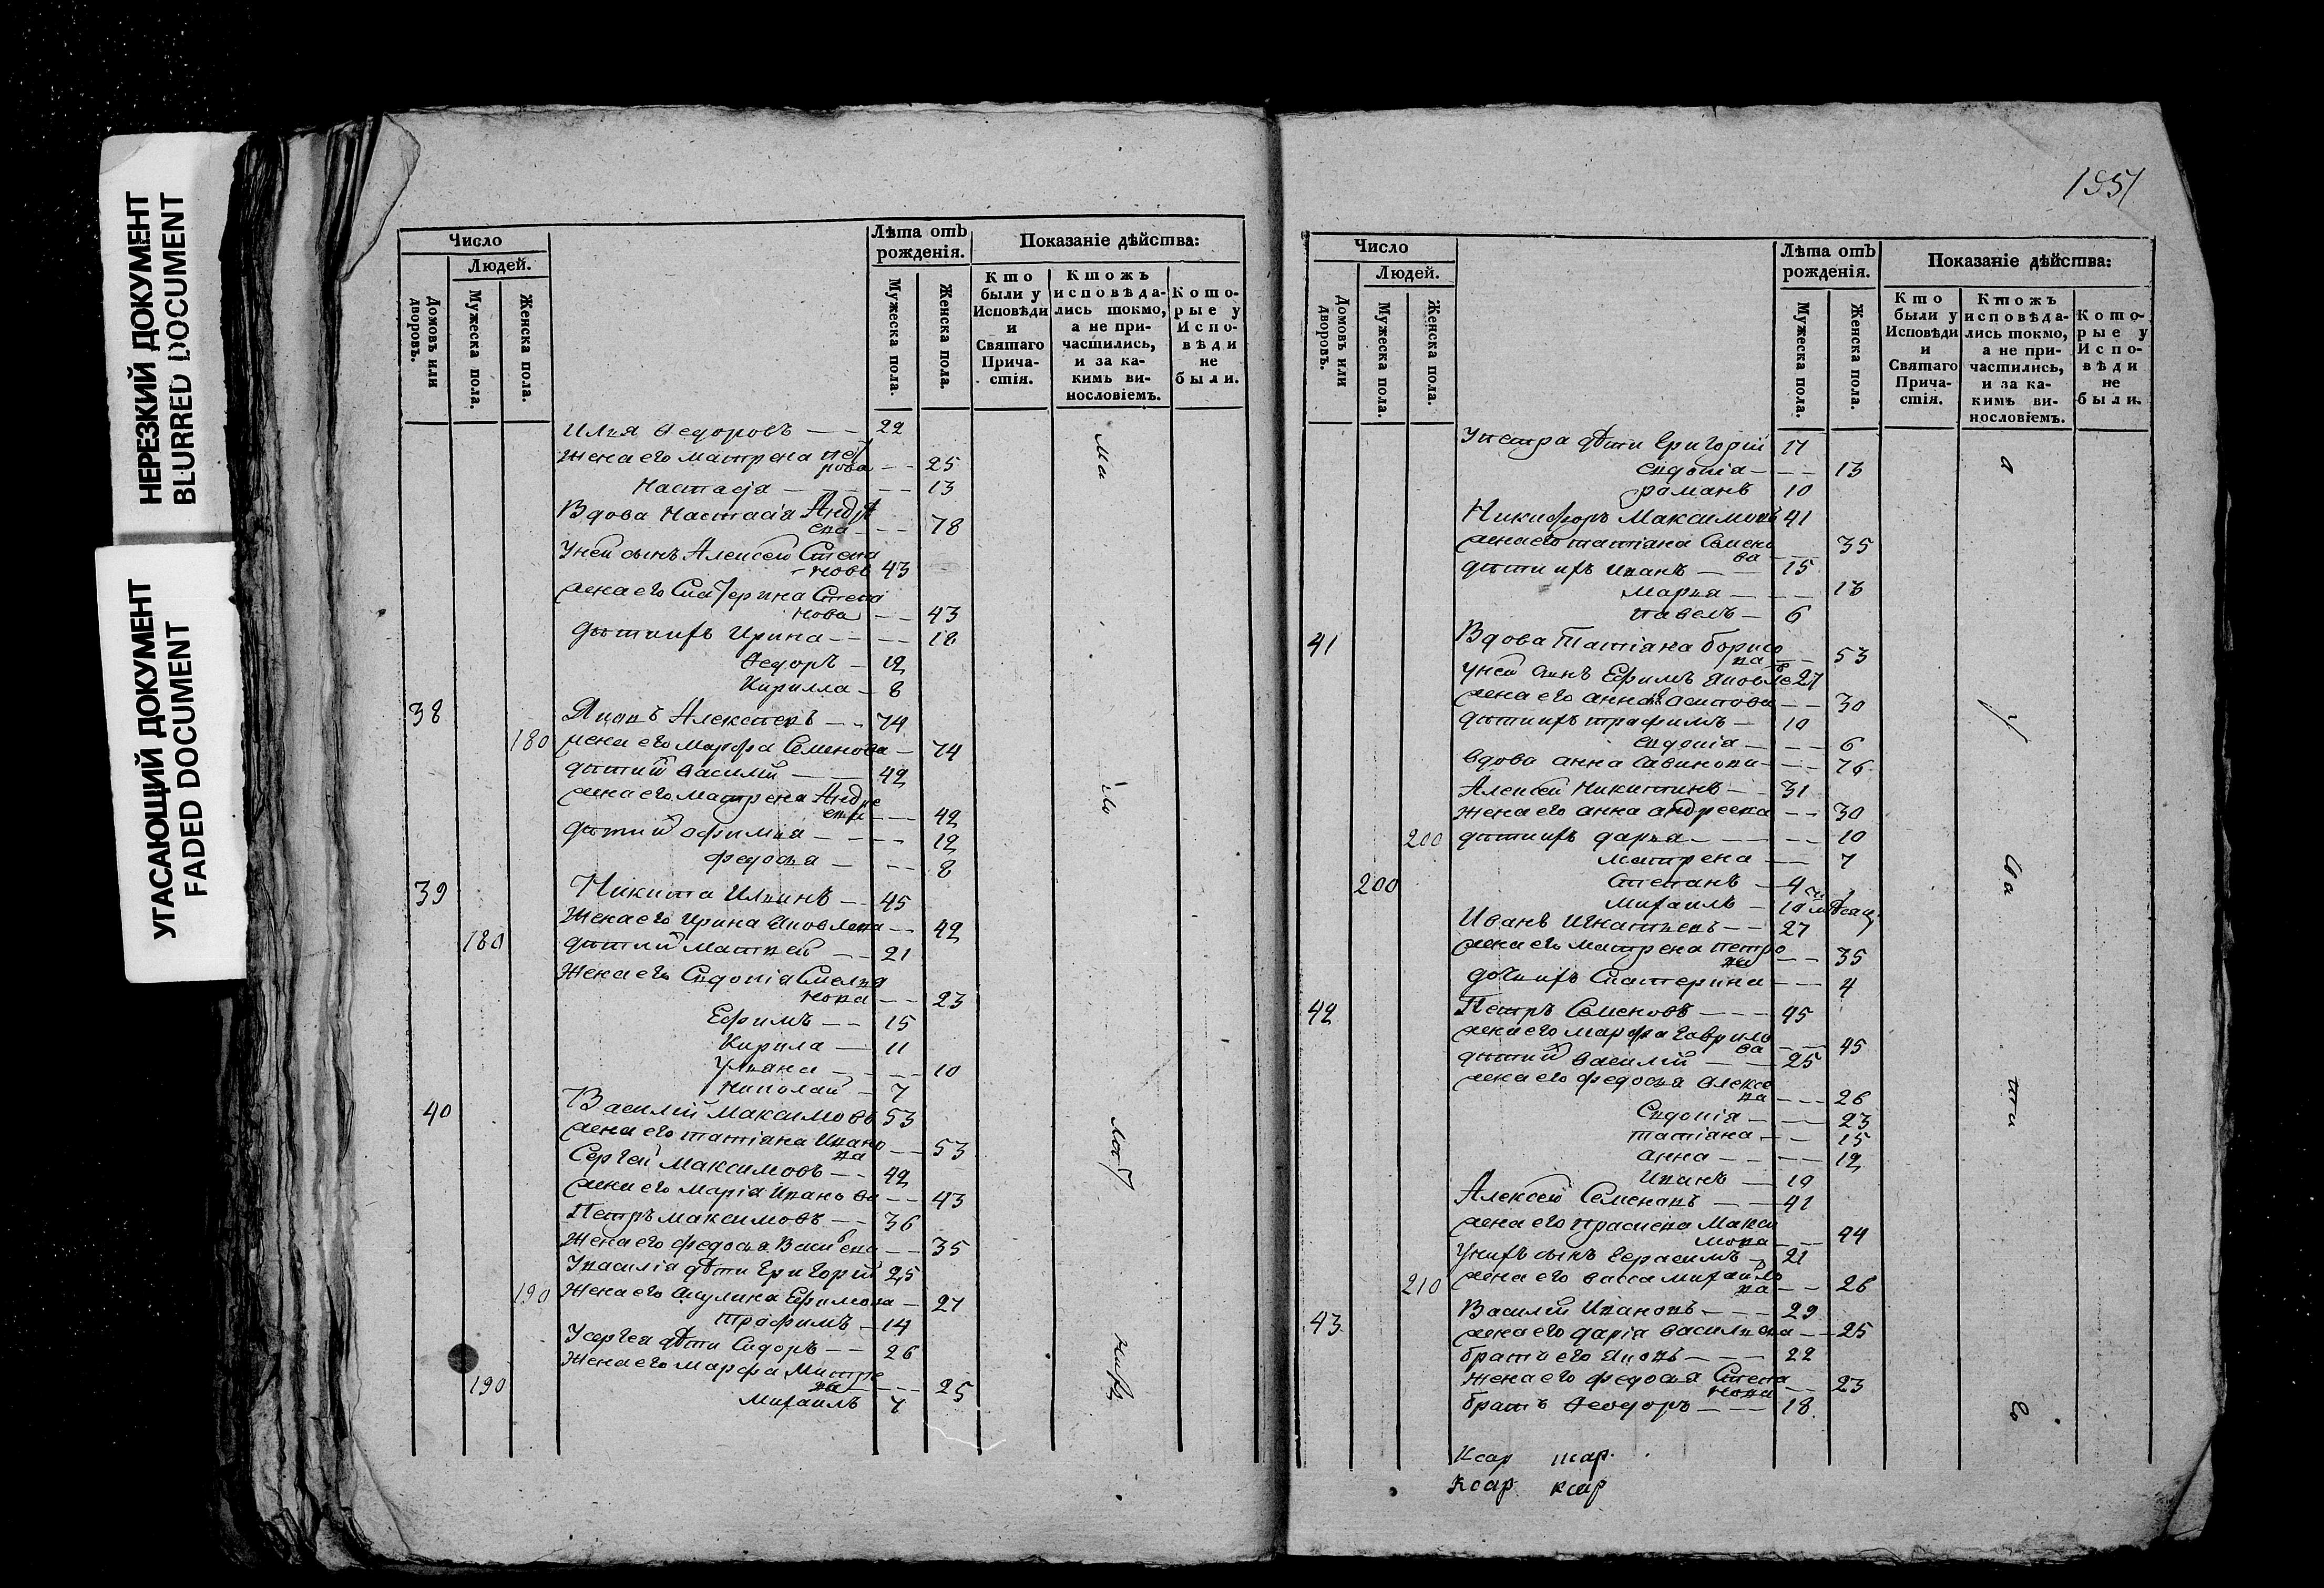 НЕРЕЗКИЙ ДОКУМЕНТ
BLURRED DOCUMENT
УГАСАЮЩИЙ ДОКУМЕНТ
FADED DOCUMENT
Число
Людей.
Домовъ или дворовъ.
Мужеска пола.
Женска пола.
Лѣта отъ рожденія.
Мужеска пола.
Женска пола.
Показаніе дѣйства:
Кто были у Исповѣди и Святаго Прича-стія.
Ктожъ исповѣда-лись токмо, а не при-частились, и за ка-кимъ ви-нословіемъ.
Кото-рые у Испо-вѣди не были.
Илья Федоровъ 22
Жена его Матрена Пет
рова 25
Настасја 13
Вдова Настасіа Андре
ева 78
У ней сынъ Алексей Степа
новъ 43
жена его Катерина Степа
нова 43
дѣти ихъ Ирина 18
Федоръ 12
Кирилла 8
38 Яковъ Алексеевъ 74
180 жена его Марфа Семенова 74
дѣти й Василій 42
жена его Матрена Андре
ева 42
дѣти й Афимья 12
Федосья 8
39 Никита Ильинъ 45
Жена его Ирина Яковлева 42
180 дѣти й Матвей 21
Жена его Евдокіа Емелья
нова 23
Ефимъ 15
Кирила 11
Ульяна 10
Николай 7
40 Василій Максимовъ 53
жена его Татіана Ивано
ва 53
Сергей Максимовъ 42
жена его Маріа Иванова 43
Петръ Максимовъ 36
Жена его Федосья Васильева 35
У Василіа дѣти Григорій 25
190 Жена его Акулина Ефимова 27
Трафимъ 14
У Сергея дѣти Сидоръ 26
Жена его Марфа Митре
ва 25
190
Михаилъ 7
1951
Число
Людей.
Домовъ или дворовъ.
Мужеска пола.
Женска пола.
Лѣта отъ рожденія.
Мужеска пола.
Женска пола.
Показаніе дѣйства:
Кто были у Исповѣди и Святаго Прича-стія.
Ктожъ исповѣда-лись токмо, а не при-частились, и за ка-кимъ ви-нословіемъ.
Кото-рые у Испо-вѣди не были.
У Петра дѣти Григорій 17
Евдокіа 13
Раманъ 10
Никифоръ Максимовъ 41
жена его Татіана Семено
ва 35
дѣти ихъ Иванъ 15
Марья 13
Павелъ 6
41 Вдова Татіана Борисо
ва 53
У ней сынъ Ефимъ Яковле 27
жена его Анна 30
дѣти ихъ Трафимъ 10
Евдокіа 6
Вдова Анна Савинова 76
Алексей Никитинъ 31
Жена его Анна Андреева 30
200 дѣти ихъ Дарья 10
Матрена 7
200 Степанъ 4
Михаилъ 10
Иванъ Игнатьевъ 27
жена его Матрена Петро
ва 35
дочь ихъ Катерина 4
42 Петръ Семеновъ 45
жена его Марфа Гаврило
ва 45
дѣти й Василій 25
жена его Федосья Алексе
ва 26
Евдокіа 23
Татіана 15
Анна 12
Иванъ 19
Алексей Семеновъ 41
жена его Прасковя Макси
мова 44
У нихъ сынъ Герасимъ 21
210 жена его Васса Михайло
ва 26
43 Василій Ивановъ 29
жена его Дарiа Васильева 25
братъ его Яковъ 22
Жена его Федосья Степа
нова 23
братъ Феодоръ 18